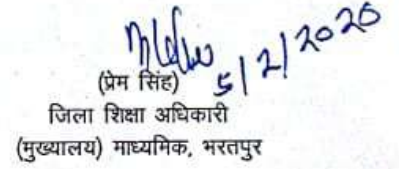 5/2/2020
(प्रेम सिंह)
जिला शिक्षा अधिकारी
(मुख्यालय) माध्यमिक, भरतपुर